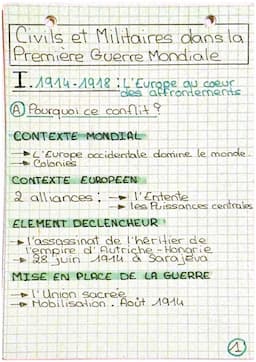 Civils et Militaires dans la
Première Guerre Mondiale
I. 1914-1918 : L'Europe au coeur
des affrontements
A Pourquoi ce conflit ?
CONTEXTE MONDIAL
→ L'Europe occidentale domine le monde.
→ Colonies
CONTEXTE EUROPEEN
2 alliances : → l'Entente
→ les Puissances centrales
ELEMENT DECLENCHEUR
→ l'assassinat de l'héritier de
l'empire d'Autriche-Hongrie
→ 28 juin 1914 à Sarajevo
MISE EN PLACE DE LA GUERRE
→ l'Union sacrée
→ Mobilisation : Août 1914
1